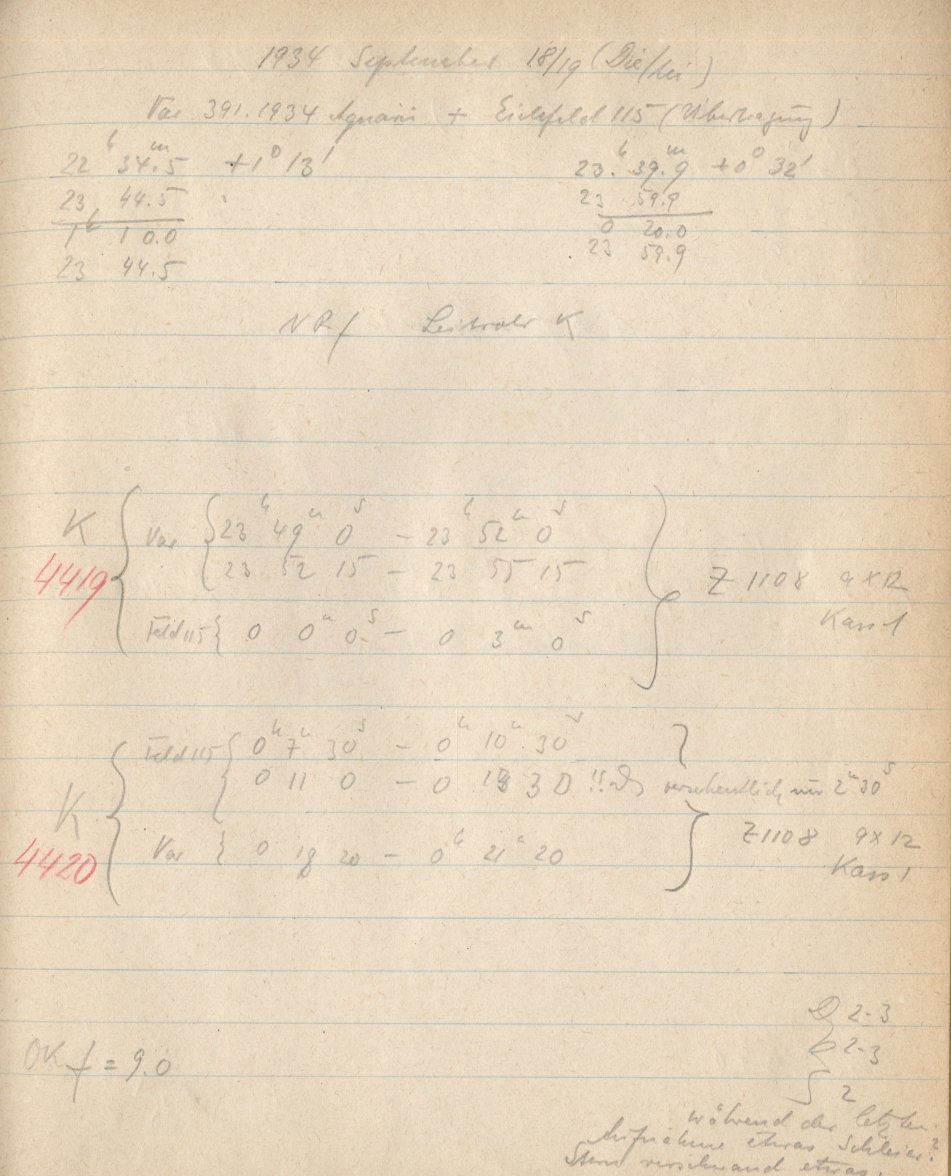 1934 September 18/19 (Die/Mi)
Var 391.1934 Aquarii + Eichfeld 115 (Übertragung)
22 h 34.5 m +1° 13' 23. h 39.9 m +0° 32'
23 44.5 23 59.9
1 h 10.0 0 20.0
23 44.5 23 59.9
NRf Leitrohr K
K Var { 23 h 49 m 0 s – 23 h 52 m 0 s
4419 23 52 15 – 23 55 15 Z 1108 9 x 12
Feld 115 { 0 0 m 0 s – 0 3 m 0 s Kass 1
Feld 115 { 0 h 7 m 30 s – 0 h 10 m 30 s
K 0 11 0 – 0 13 30 !! versehentlich nur 2 m 30 s
4420 Var { 0 18 20 – 0 h 21 m 20 Z 1108 9 x 12
Kass 1
D 2-3
OK f = 9.0 2-3
S 2
während der letzten
Aufnahme etwas Schleier?
Stern verschwand etwas